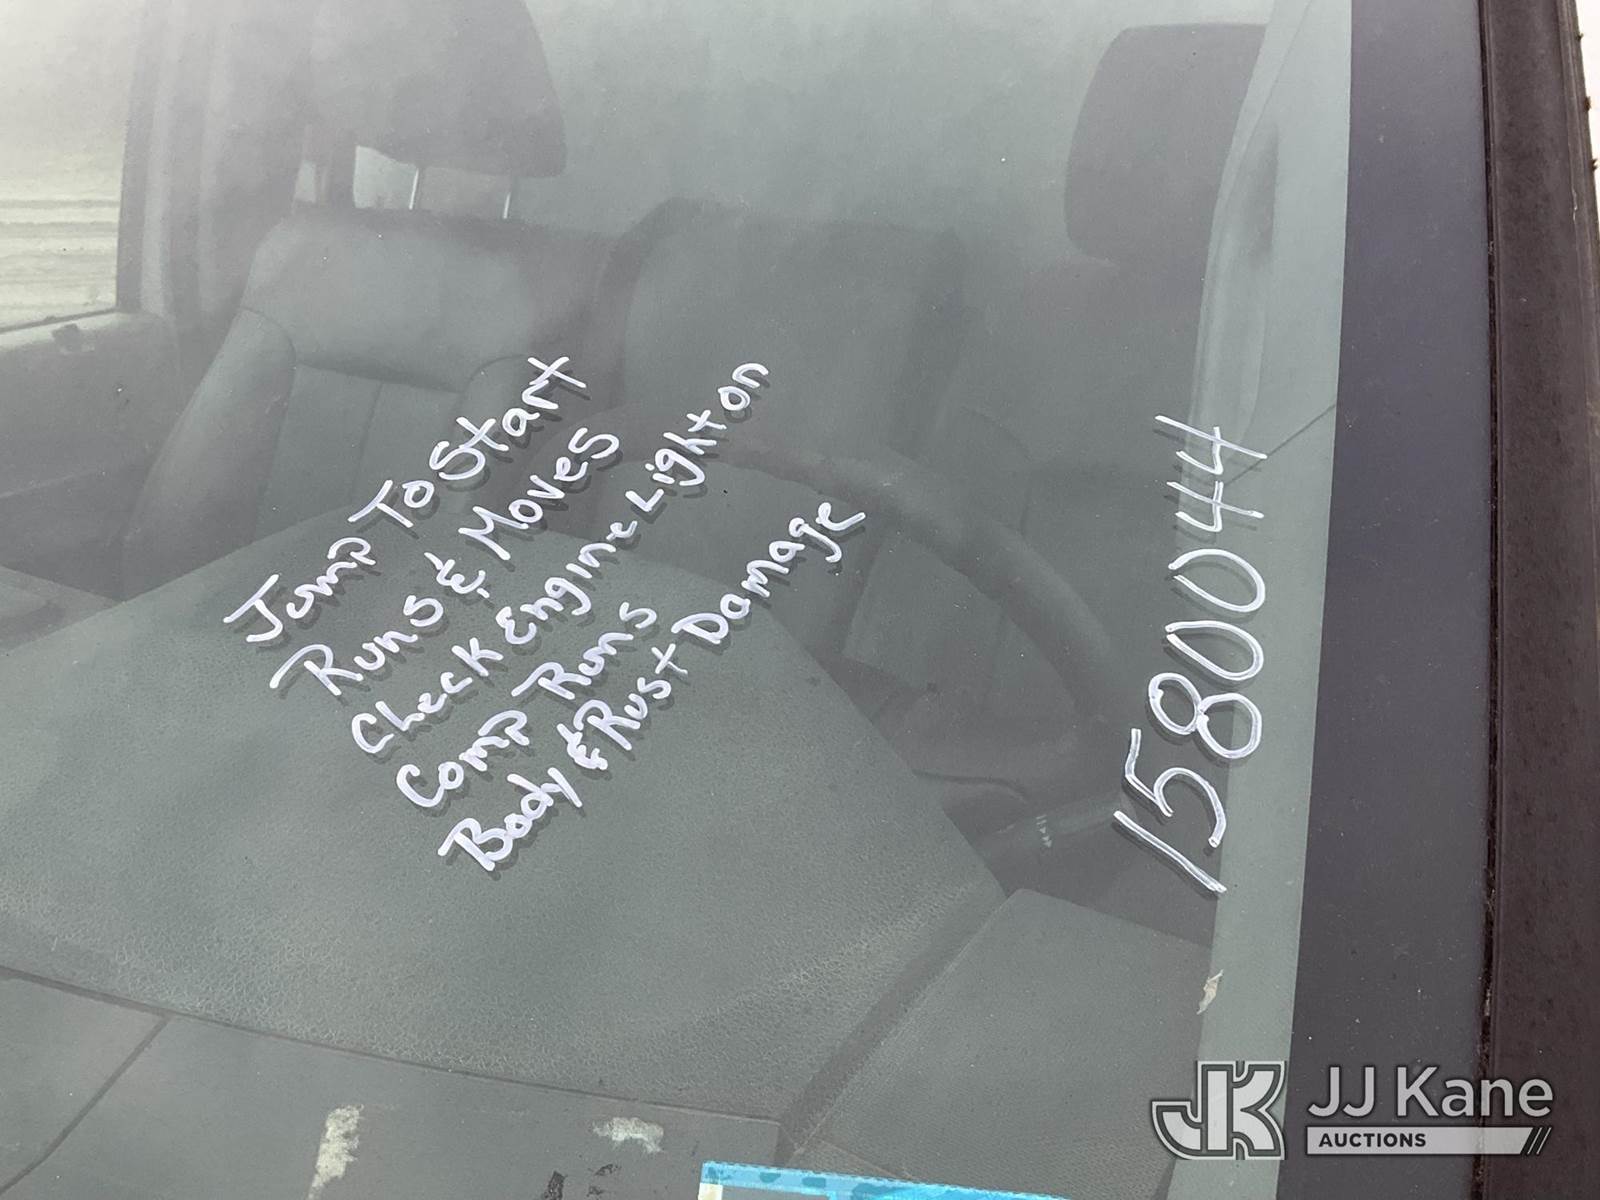 Jump To Start
Runs & Moves
Check Engine Light on
Comp Runs
Body & Rust Damage
1580044
JK
JJ Kane
AUCTIONS